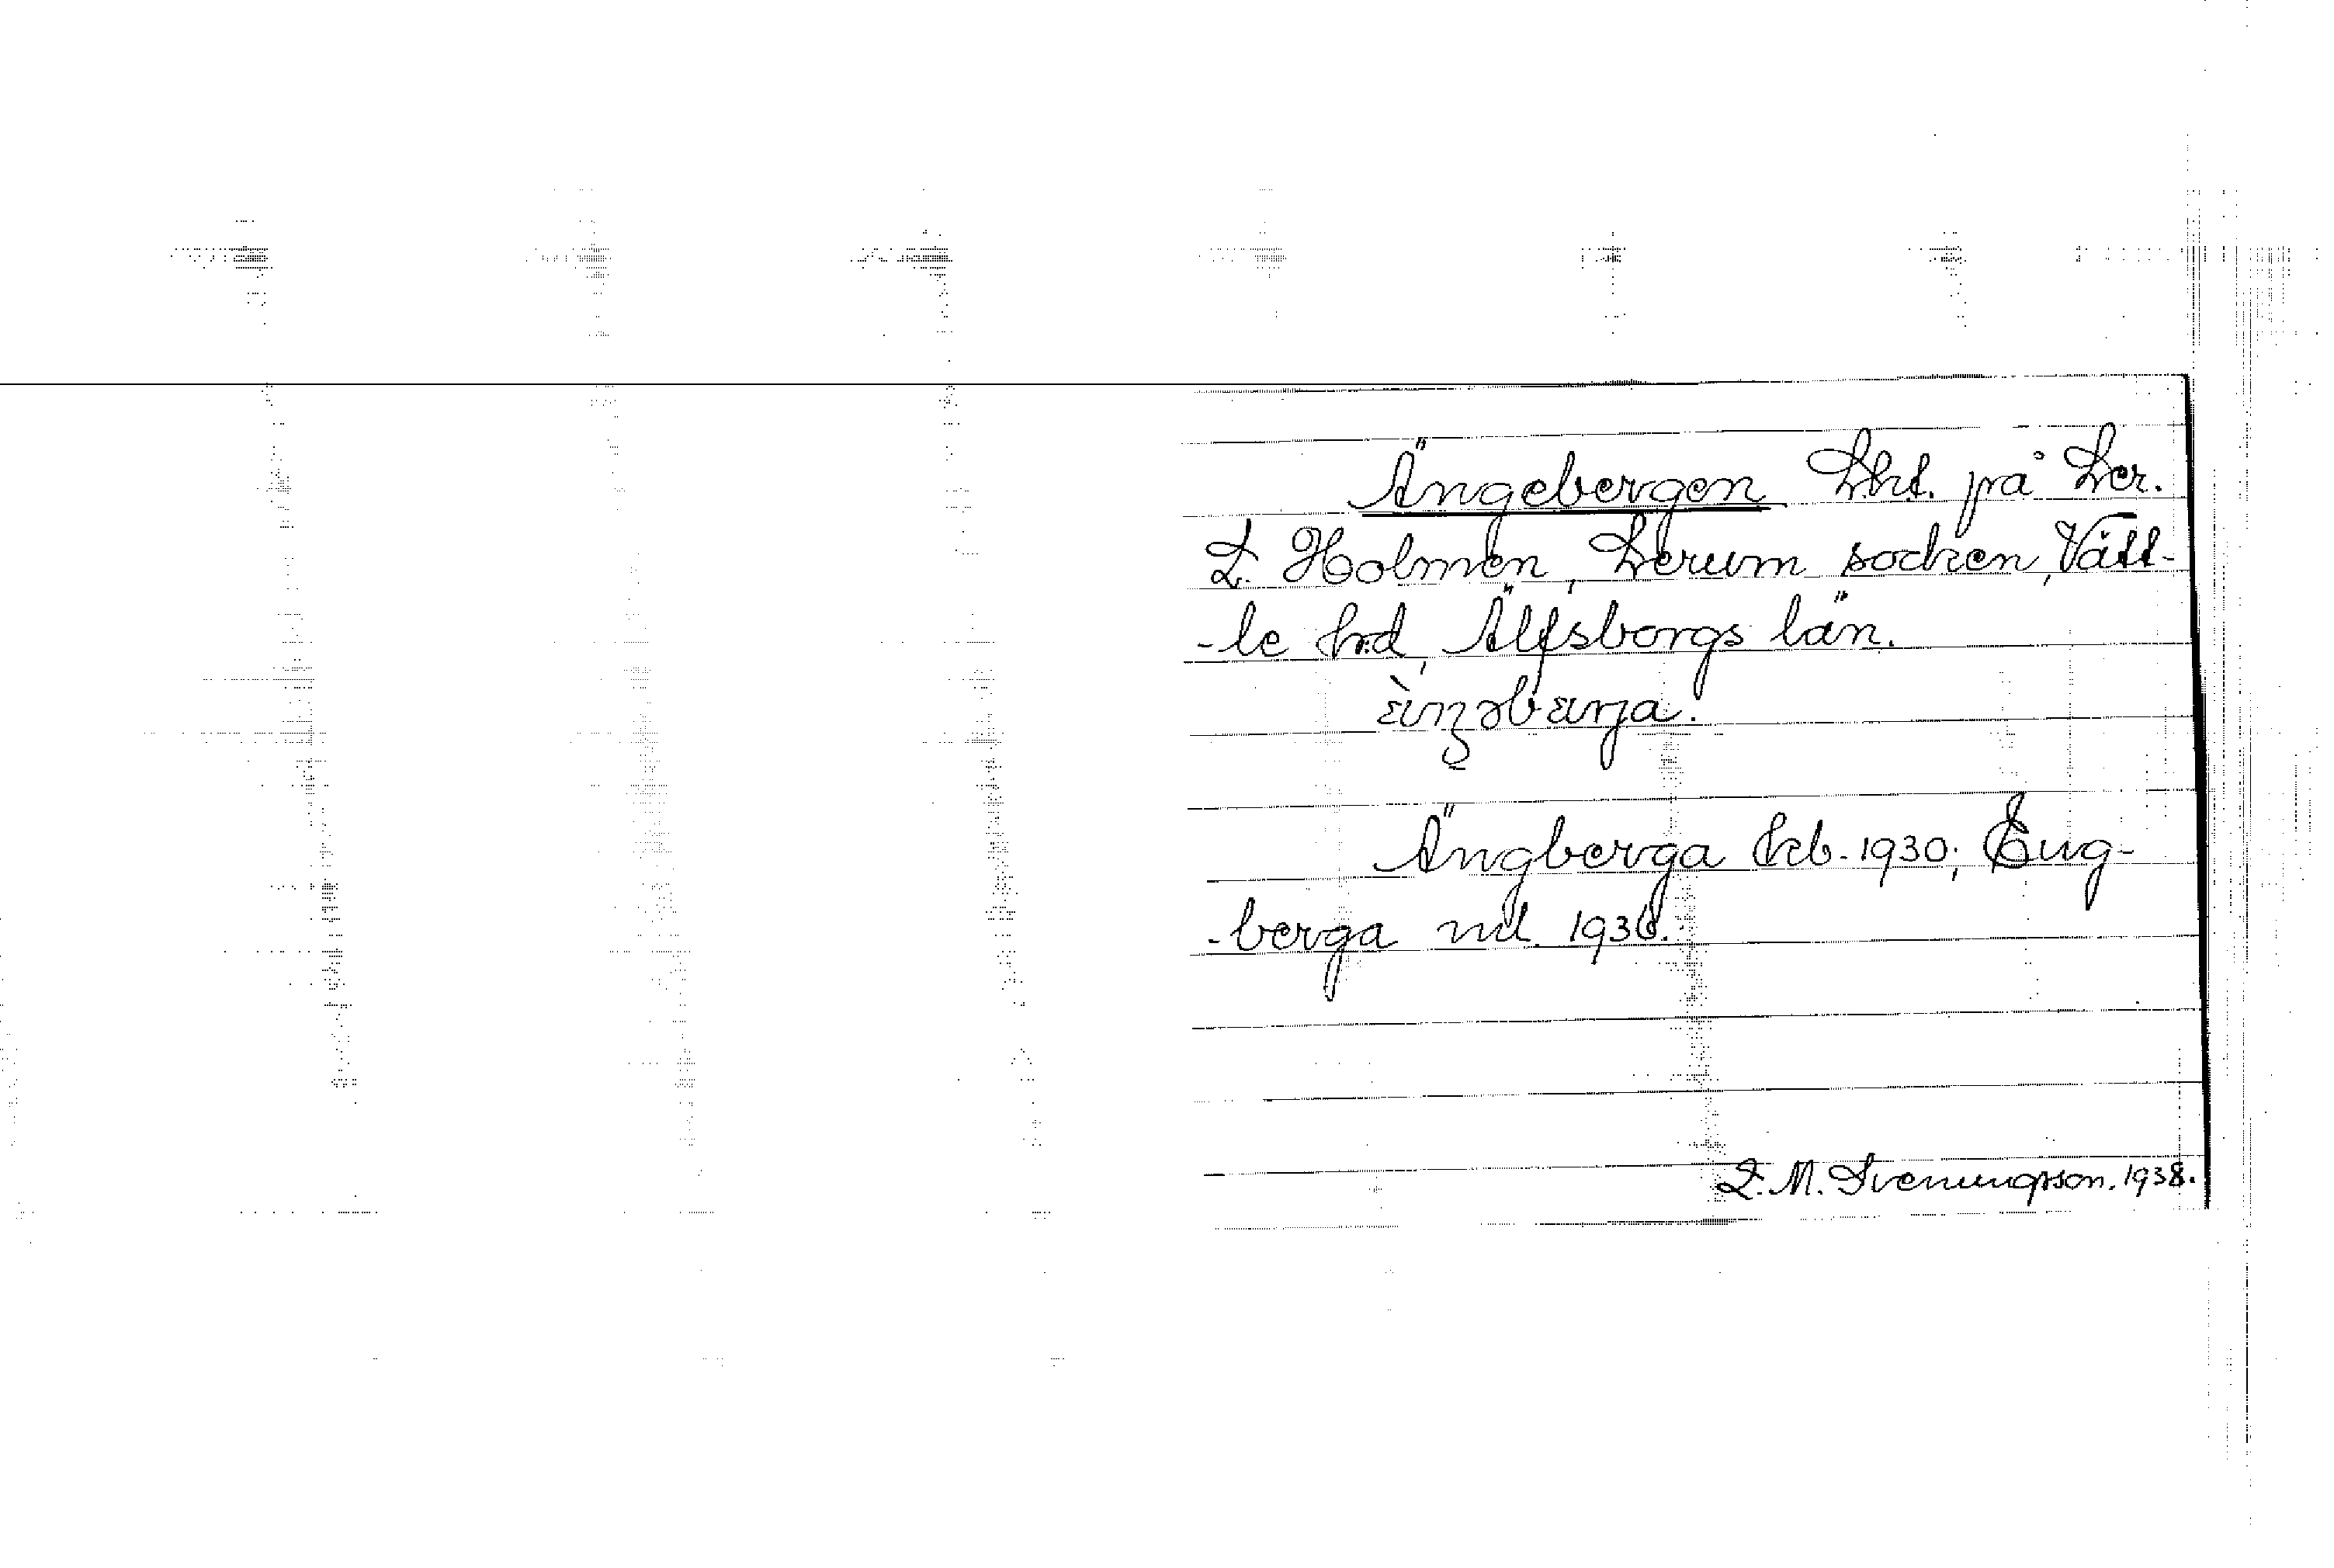 Ängebergen Lht. på Ler.
L. Holmen, Lerum socken, Vätt-
-le hd, Älfsborgs län.
ὲŋəbærja.
Ängberga kb. 1930; Eng-
berga 1930.
D. M. Svenungsson. 1938.